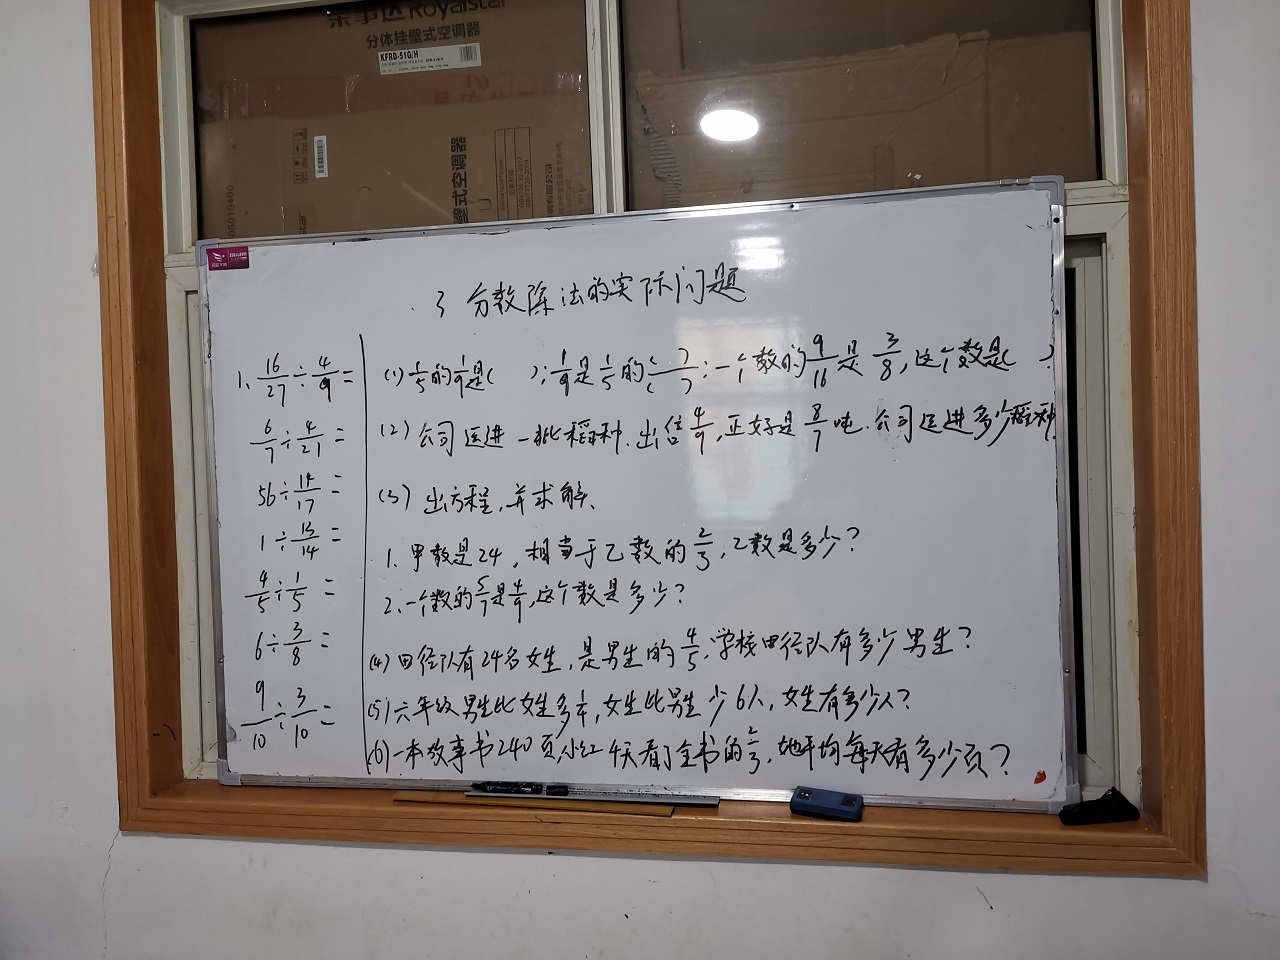 荣事达Royalstar
分体挂壁式空调器
KFRD-51G/H
壁式空调器
3 分数除法的实际问题
1、16/27÷4/9=
6/7÷4/21=
56÷14/17=
1÷13/14=
4/5÷1/5=
6÷3/8=
9/10÷3/10=
(1) 1/5的1/9是( );1/9是1/5的( )/( );一个数的9/16是3/8,这个数是( )
(2) 公司运进一批稻种.出售4/9,正好是8/7吨.公司运进多少稻种
(3) 出方程,并求解、
1、甲数是24,相当于乙数的2/3,乙数是多少?
2、一个数的5/7是4/9,这个数是多少?
(4) 田径队有24名女生,是男生的4/5.学校田径队有多少男生?
(5) 六年级男生比女姓多,女生比男生少6人,女生有多少人?
(6) 一本故事书240页,小红4天看了全书的2/3,她平均每天看多少页?